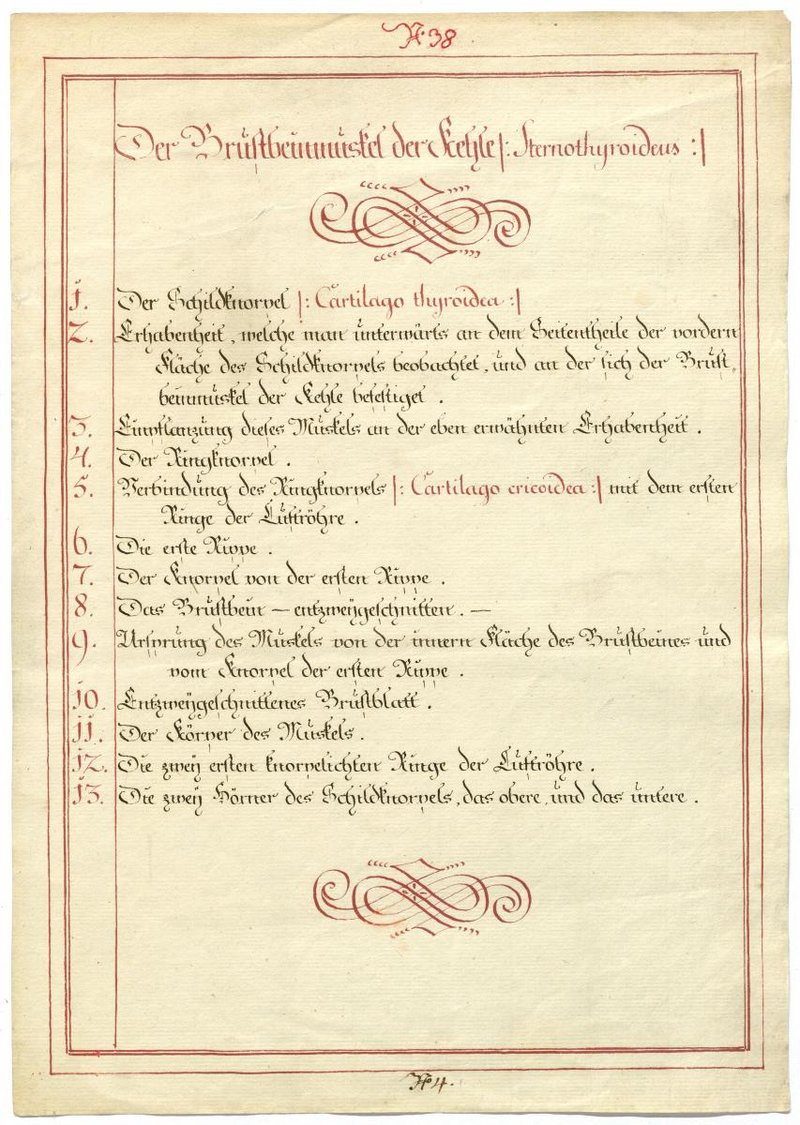 N. 38
Der Brustbeinmuskel der Kehle |: Sternothyroideus :|
1. Der Schildknorpel |: Cartilago thyroidea :|
2. Erhabenheit, welche man unterwärts an dem Seitentheile der vordern
Fläche des Schildknorpels beobachtet, und an der sich der Brust-
beinmuskel der Kehle befestiget.
3. Einpflanzung dieses Muskels an der eben erwähnten Erhabenheit.
4. Der Ringknorpel.
5. Verbindung des Ringknorpels |: Cartilago cricoidea :| mit dem ersten
Ringe der Luftröhre.
6. Die erste Rippe.
7. Der Knorpel von der ersten Rippe.
8. Das Brustbein — entzweygeschnitten. —
9. Ursprung des Muskels von der innern Fläche des Brustbeines und
vom Knorpel der ersten Rippe.
10. Entzweygeschnittenes Brustblatt.
11. Der Körper des Muskels.
12. Die zwey ersten knorpelichten Ringe der Luftröhre.
13. Die zwey Hörner des Schildknorpels, das obere, und das untere.
N. 4.